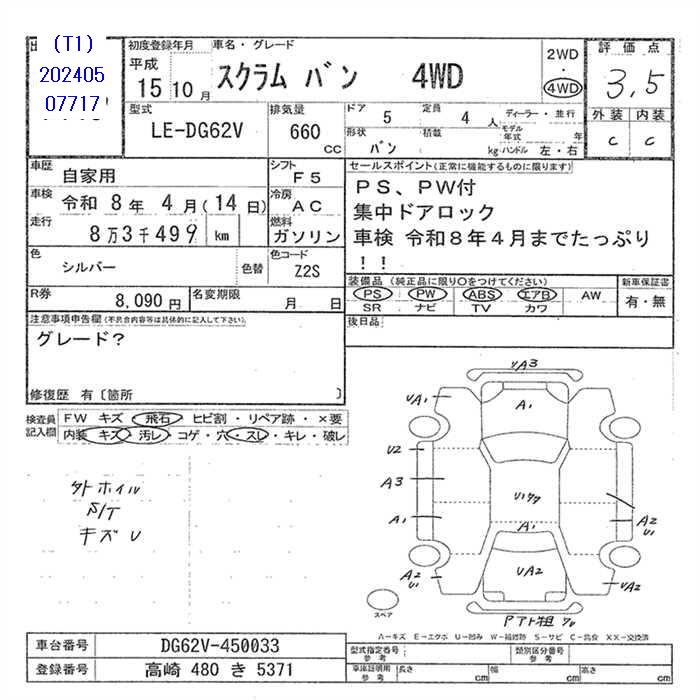 (T1)
202405
07717
初度登録年月
平成
15 10 月
車名・グレード
スクラム バン 4WD
2WD
・
4WD
評価点
3,5
外装 内装
C C
型式
LE-DG62V
排気量
660
CC
ドア 5
定員 4 人
形状 バン
積載 kg
ディーラー・並行
モデル年式 年
ハンドル 左・右
車歴 自家用
シフト F5
車検 令和 8年 4月(14日)
冷房 AC
走行 8万3千499 km
燃料 ガソリン
色 シルバー
色替
色コード Z2S
R券 8,090円
名変期限 月 日
セールスポイント(正常に機能するものに限ります)
PS、PW付
集中ドアロック
車検 令和8年4月までたっぷり
!!
装備品(純正品に限り○をつけてください)
PS PW ABS エアB AW
SR ナビ TV カワ
新車保証書
有・無
後日品
注意事項申告欄(不具合内容等は具体的に記入して下さい)
グレード?
修復歴 有〔箇所 〕
検査員記入欄
FW キズ・飛石・ヒビ割・リペア跡・×要
内装 キズ・汚レ・コゲ・穴・スレ・キレ・破レ
外ホイル
S/T
キズ U
UA3
UA1
A1
U2
A3
A1
A1
A2
U1
A2
U1
UA2
UA2
スペア
A−キズ E−エクボ U−凹み W−補修跡 S−サビ C−腐食 XX−交換済
車台番号 DG62V-450033
登録番号 高崎 480 き 5371
型式指定番号 参考
類別区分番号 参考
車庫証明用 参考
長さ cm
幅 cm
高さ cm